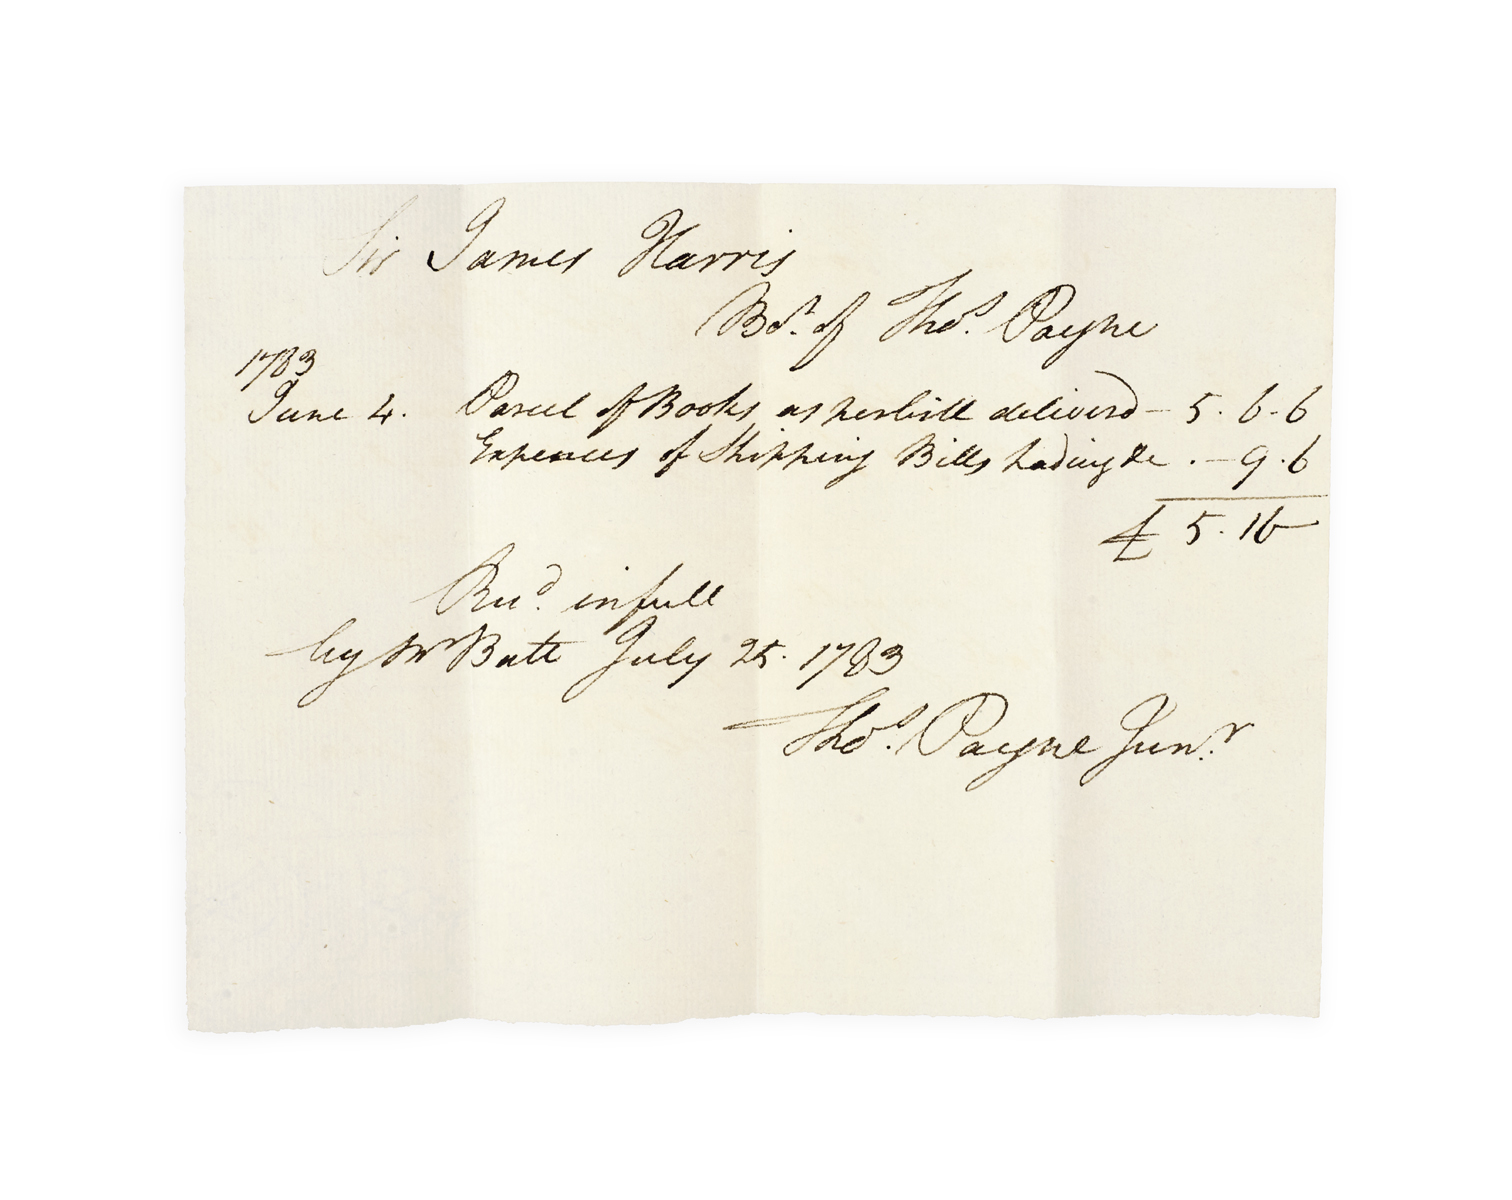 Sir James Harris
Bot. of Thos. Payne
1783
June 4. Parcel of Books as per bill deliverd - 5. 6-6
Expences of Shipping Bills Lading &c . - 9.6
£ 5. 16 -
Recd. in full
by Mr Batt July 25. 1783
Thos. Payne Junr.